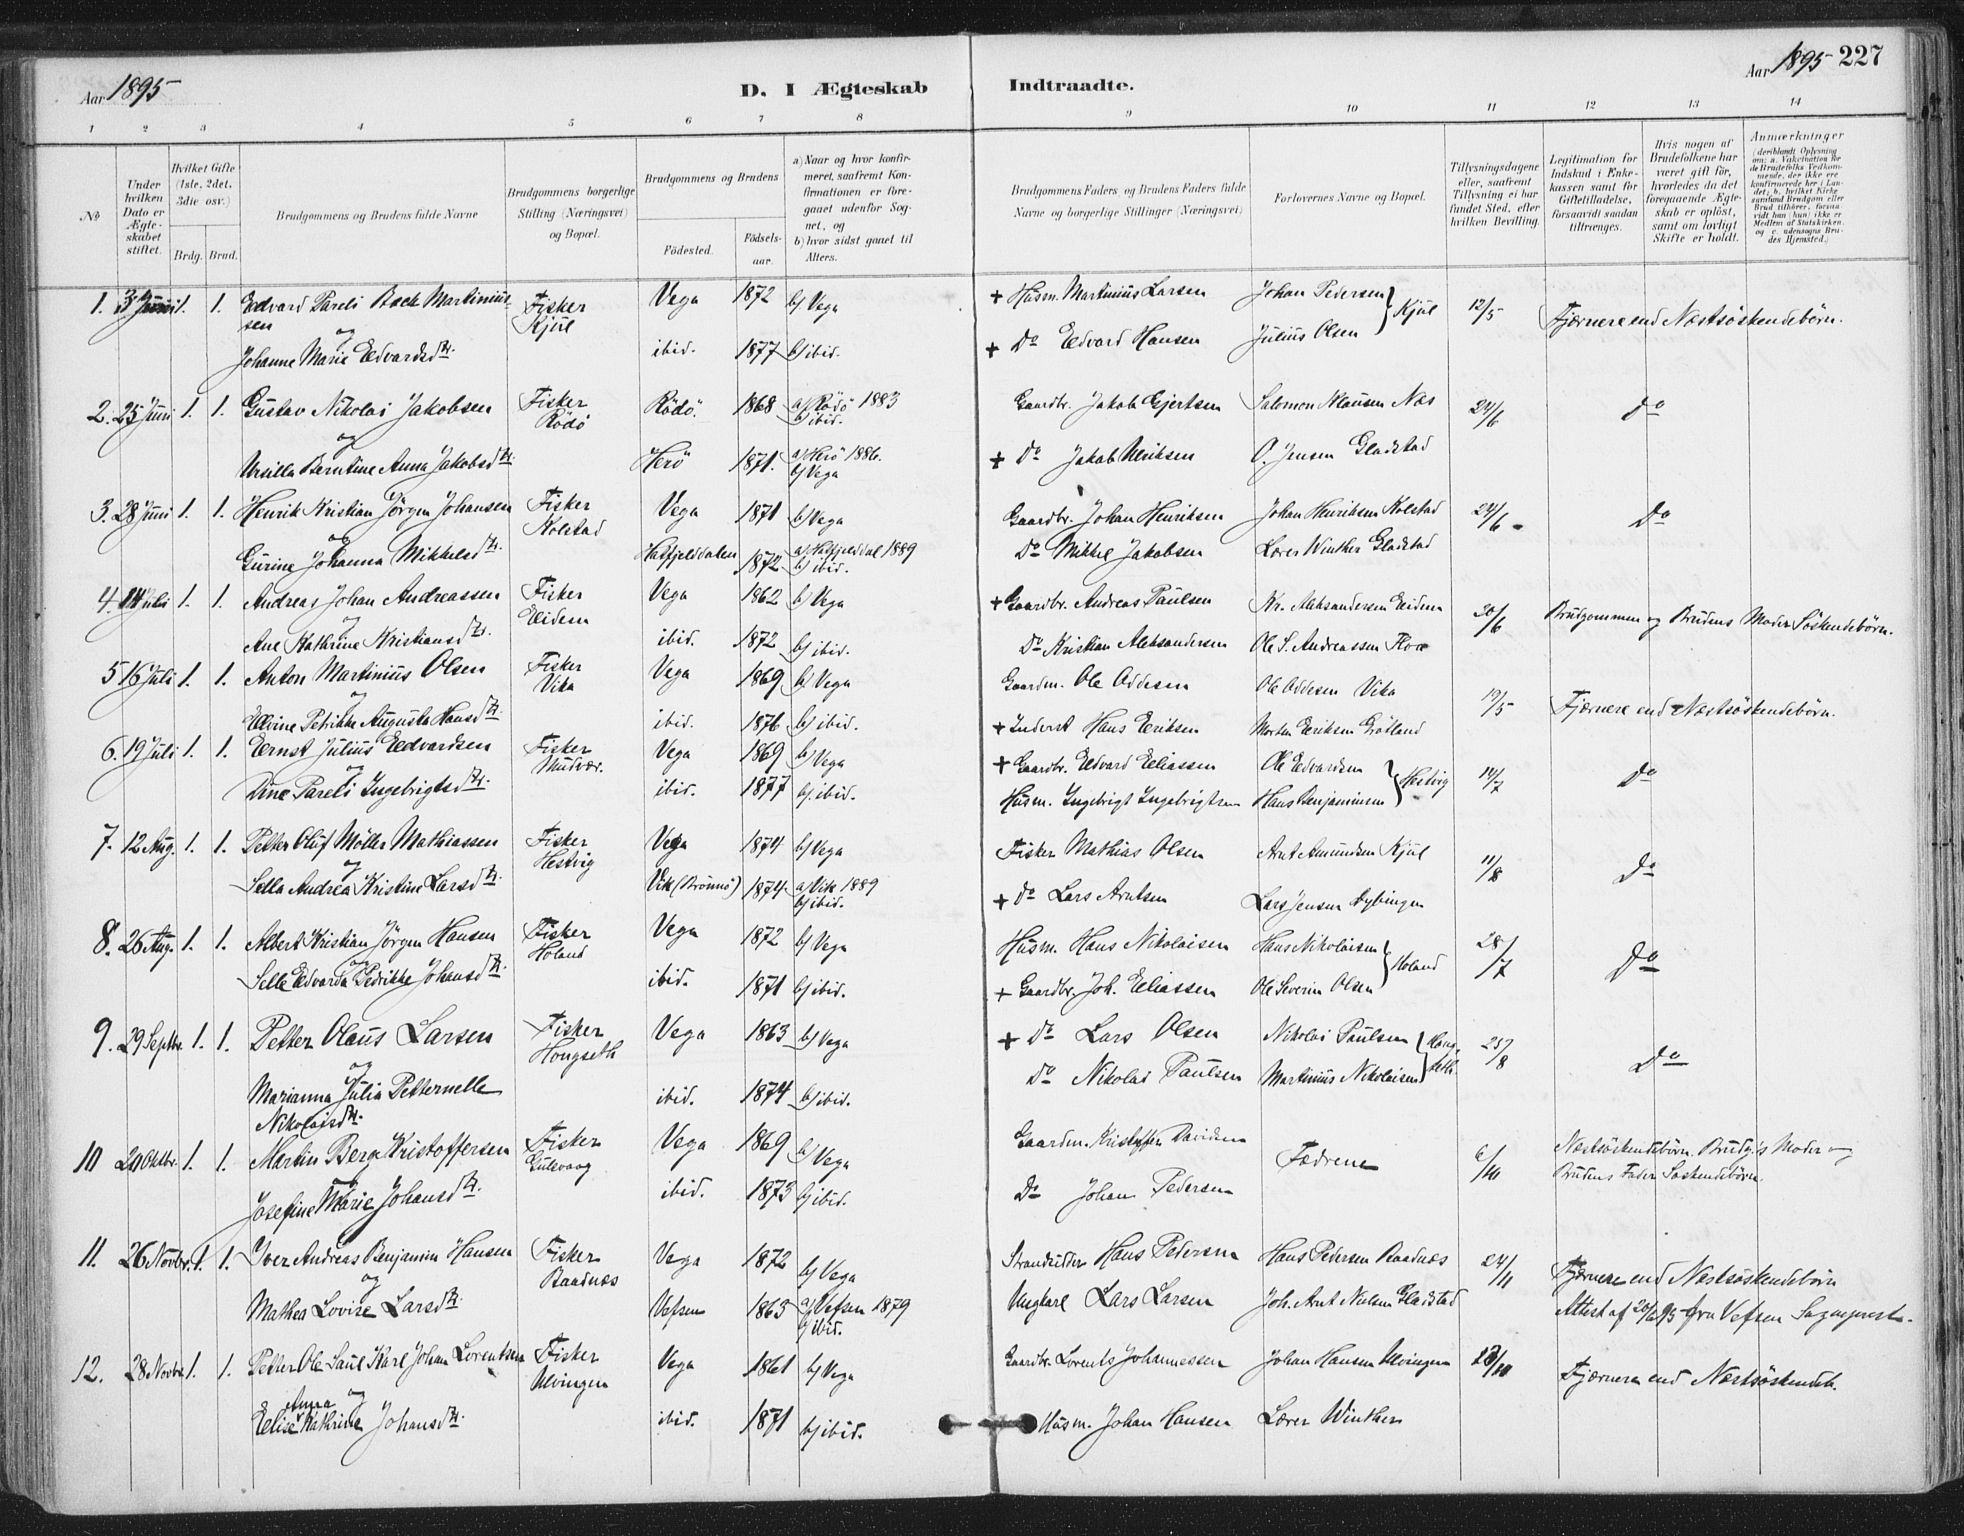 Aar 1895
D. I Ægteskab Indtraadte.
Aar 1895 227
1 2 3 4 5 6 7 8 9 10 11 12 13 14
No
Under hvilken Dato er Ægteskabet stiftet.
Hvilket Gifte (1ste, 2det, 3die osv.)
Brdg. Brud.
Brudgommens og Brudens fulde Navne
Brudgommens borgerlige Stilling (Næringsvei) og Bopæl.
Brudgommens og Brudens
Fødested.
Fødselsaar.
a) Naar og hvor konfirmeret, saafremt Konfirmationen er foregaaet udenfor Sognet, og
b) hvor sidst gaaet til Alters.
Brudgommens Faders og Brudens Faders fulde Navne og borgerlige Stillinger (Næringsvei)
Forlovernes Navne og Bopæl.
Tillysningsdagene eller, saafremt Tillysning ei har fundet Sted, efter hvilken Bevilling.
Legitimation for Indskud i Enkekassen samt for Giftetilladelse, forsaavidt saadan tiltrænges.
Hvis nogen af Brudefolkene har været gift før, hvorledes da det foregaaende Ægteskab er opløst, samt om lovligt Skifte er holdt.
Anmærkninger
1. 3 Juni 1. 1. Edvard Pareli Back Martinius- Fisker Vega 1872 b) Vega + Husm. Martinius Larsen Johan Pedersen 12/5 Fjærnere end Næstsöskendebörn.
sen og Kjül Kjül
Johanne Marie Edvardsdtr. ibid. 1877 b) ibid. + Do Edvard Hansen Julius Olsen
2. 25 Juni 1. 1. Gustav Nikolai Jakobsen Fisker Rödö. 1868 a) Rödö 1883 Gaardbr. Jakob Gjertsen Salomon Klausen Næs 24/6 Do
og Rödö b) ibid.
Ursilla Berntine Anna Jakobsdtr. Herö 1871. a) Herö 1886. + Do Jakob Ulriksen O. Jensen Gladstad
b) Vega
3. 28 Juni 1. 1. Henrik Kristian Jörgen Johansen Fisker Vega 1871 b) Vega Gaardbr. Johan Henriksen Johan Henriksen Kolstad 24/6 Do
og Kolstad
Gurine Johanna Mikkelsdtr. Hatfjelddalen 1872 a) Hatfjelddal 1889 Do Mikkel Jakobsen Lærer Winther Gladstad
b) ibid.
4. 14 Juli 1. 1. Andreas Johan Andreassen Fisker Vega 1862 b) Vega + Gaardbr. Andreas Paulsen Kr. Aleksandersen Eidem 20/6 Brudgommen og Brudens Moder Söskendebörn.
og Eidem
Ane Kathrine Kristiansdtr. ibid. 1872 b) ibid. Do Kristian Aleksandersen Ole S. Andreassen
5 16 Juli 1. 1. Anton Martinius Olsen Fisker Vega 1869 b) Vega Gaardm. Ole Oddesen Ole Oddesen Vika 19/5 Fjærnere end Næstsöskendebörn.
og Vika
Elvine Petrikke Augusta Hansdtr. ibid. 1876 b) ibid. + Inderst Hans Eriksen Morten Eriksen Grötland
6. 19 Juli 1. 1. Ernst Julius Edvardsen Fisker Vega 1869 b) Vega + Gaardbr. Edvard Eliassen Ole Edvardsen 14/7 Do
og Mudvær. Hestvig
Dine Pareli Ingebrigtsdtr. ibid. 1877 b) ibid. Husm. Ingebrigt Ingebrigtsen Hans Benjaminsen
7. 12 Aug. 1. 1. Petter Oluf Möller Mathiassen Fisker Vega 1874 b) Vega Fisker Mathias Olsen Arnt Amundsen Kjül 11/8 Do
og Hestvig
Sella Andrea Kristine Larsdtr. Vik (Brönnö) 1874 a) Vik 1889 + Do Lars Arntsen Lars Jensen Dybingen
b) ibid.
8. 26 Aug. 1. 1. Albert Kristian Jörgen Hansen Fisker Vega 1872 b) Vega Husm. Hans Nikolaisen Hans Nikolaisen 28/7 Do
og Holand Holand
Selle Edvarda Pedrikke Johansdtr. ibid. 1871 b) ibid. + Gaardbr. Joh. Eliassen Ole Severin Olsen
9. 29 Septbr. 1. 1. Petter Olaus Larsen Fisker Vega 1863 b) Vega + Do Lars Olsen Nikolai Paulsen 25/8 Do
og Hongseth Hongseth
Marianna Julia Petternelle ibid. 1874 b) ibid. Do Nikolai Paulsen Martinius Nikolaisen
Nikolaisdtr.
10 20 Oktbr. 1. 1. Martin Berg Kristoffersen Fisker Vega 1869 b) Vega Gaardm. Kristoffer Davidsen Fædrene 6/10 Næstsöskendebörn. Brudg's Moder og
og Gulsvaag Brudens Fader Söskendebörn.
Josefine Marie Johansdtr. ibid. 1873 b) ibid. Do Johan Pedersen
11. 26 Novbr. 1. 1. Iver Andreas Benjamin Hansen Fisker Vega 1872 b) Vega Strandsidder Hans Pedersen Hans Pedersen Baadnæs 24/11 Fjærnere end Næstsöskendebörn
og Baadnæs
Mathea Lovise Larsdtr. Vefsen 1863 a) Vefsen 1879 Ungkarl Lars Larsen Joh. Arnt Nielsen Gladstad Attest af 95 fra Vefsen Sogneprest.
b) ibid.
12. 28 Novbr. 1. 1. Petter Ole Saul Karl Johan Lorentsen Fisker Vega 1861 b) Vega Gaardbr. Lorents Johannessen Johan Hansen Ulvingen 13/10 Fjærnere end Næstsöskendeb.
Anna og Ulvingen
Elise Kathrine Johansdtr. ibid. 1871 b) ibid. Husm. Johan Hansen Lærer Winther